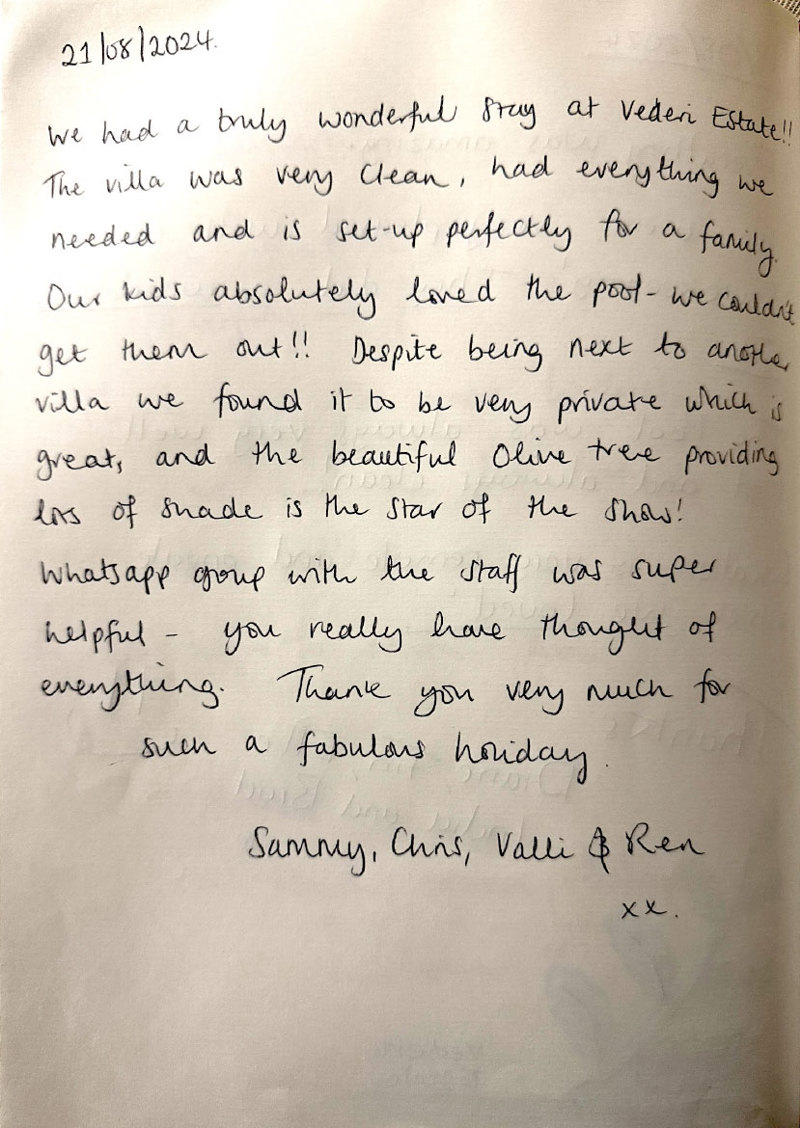 21/08/2024.
We had a truly wonderful stay at Vederi Estate!!
The villa was very clean, had everything we
needed and is set-up perfectly for a family.
Our kids absolutely loved the pool - we couldn't
get them out!! Despite being next to another
villa we found it to be very private which is
great, and the beautiful Olive tree providing
lots of shade is the star of the show!
Whatsapp group with the staff was super
helpful - you really have thought of
everything. Thank you very much for
such a fabulous holiday.
Sammy, Chris, Valli & Ren
xx.